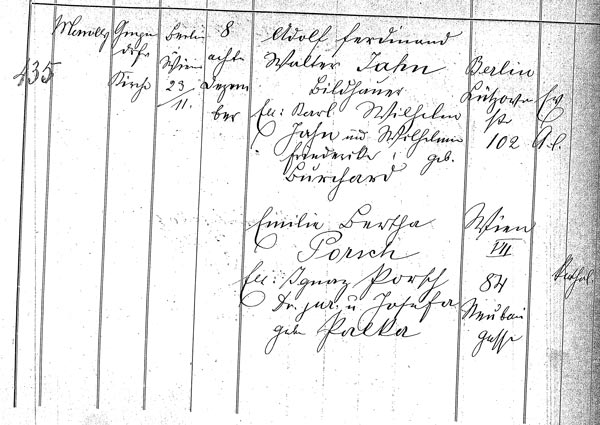 435
Gumpen
dorfer
Kirche
Berlin
Wien
23
11.
8
achte
Dezem
ber
Adolf Ferdinand
Walter Jahn
Bildhauer
Karl Wilhelm
Jahn und Wilhelmine
Friederike geb.
Burchard
Berlin
Lützow
102
Ev
A.C.
Emilie Bertha
Porsch
Ignaz Porsch
Dr. jur. u Josefa
geb Palka
Wien
VII
84
Neubau
gasse
Kathol.